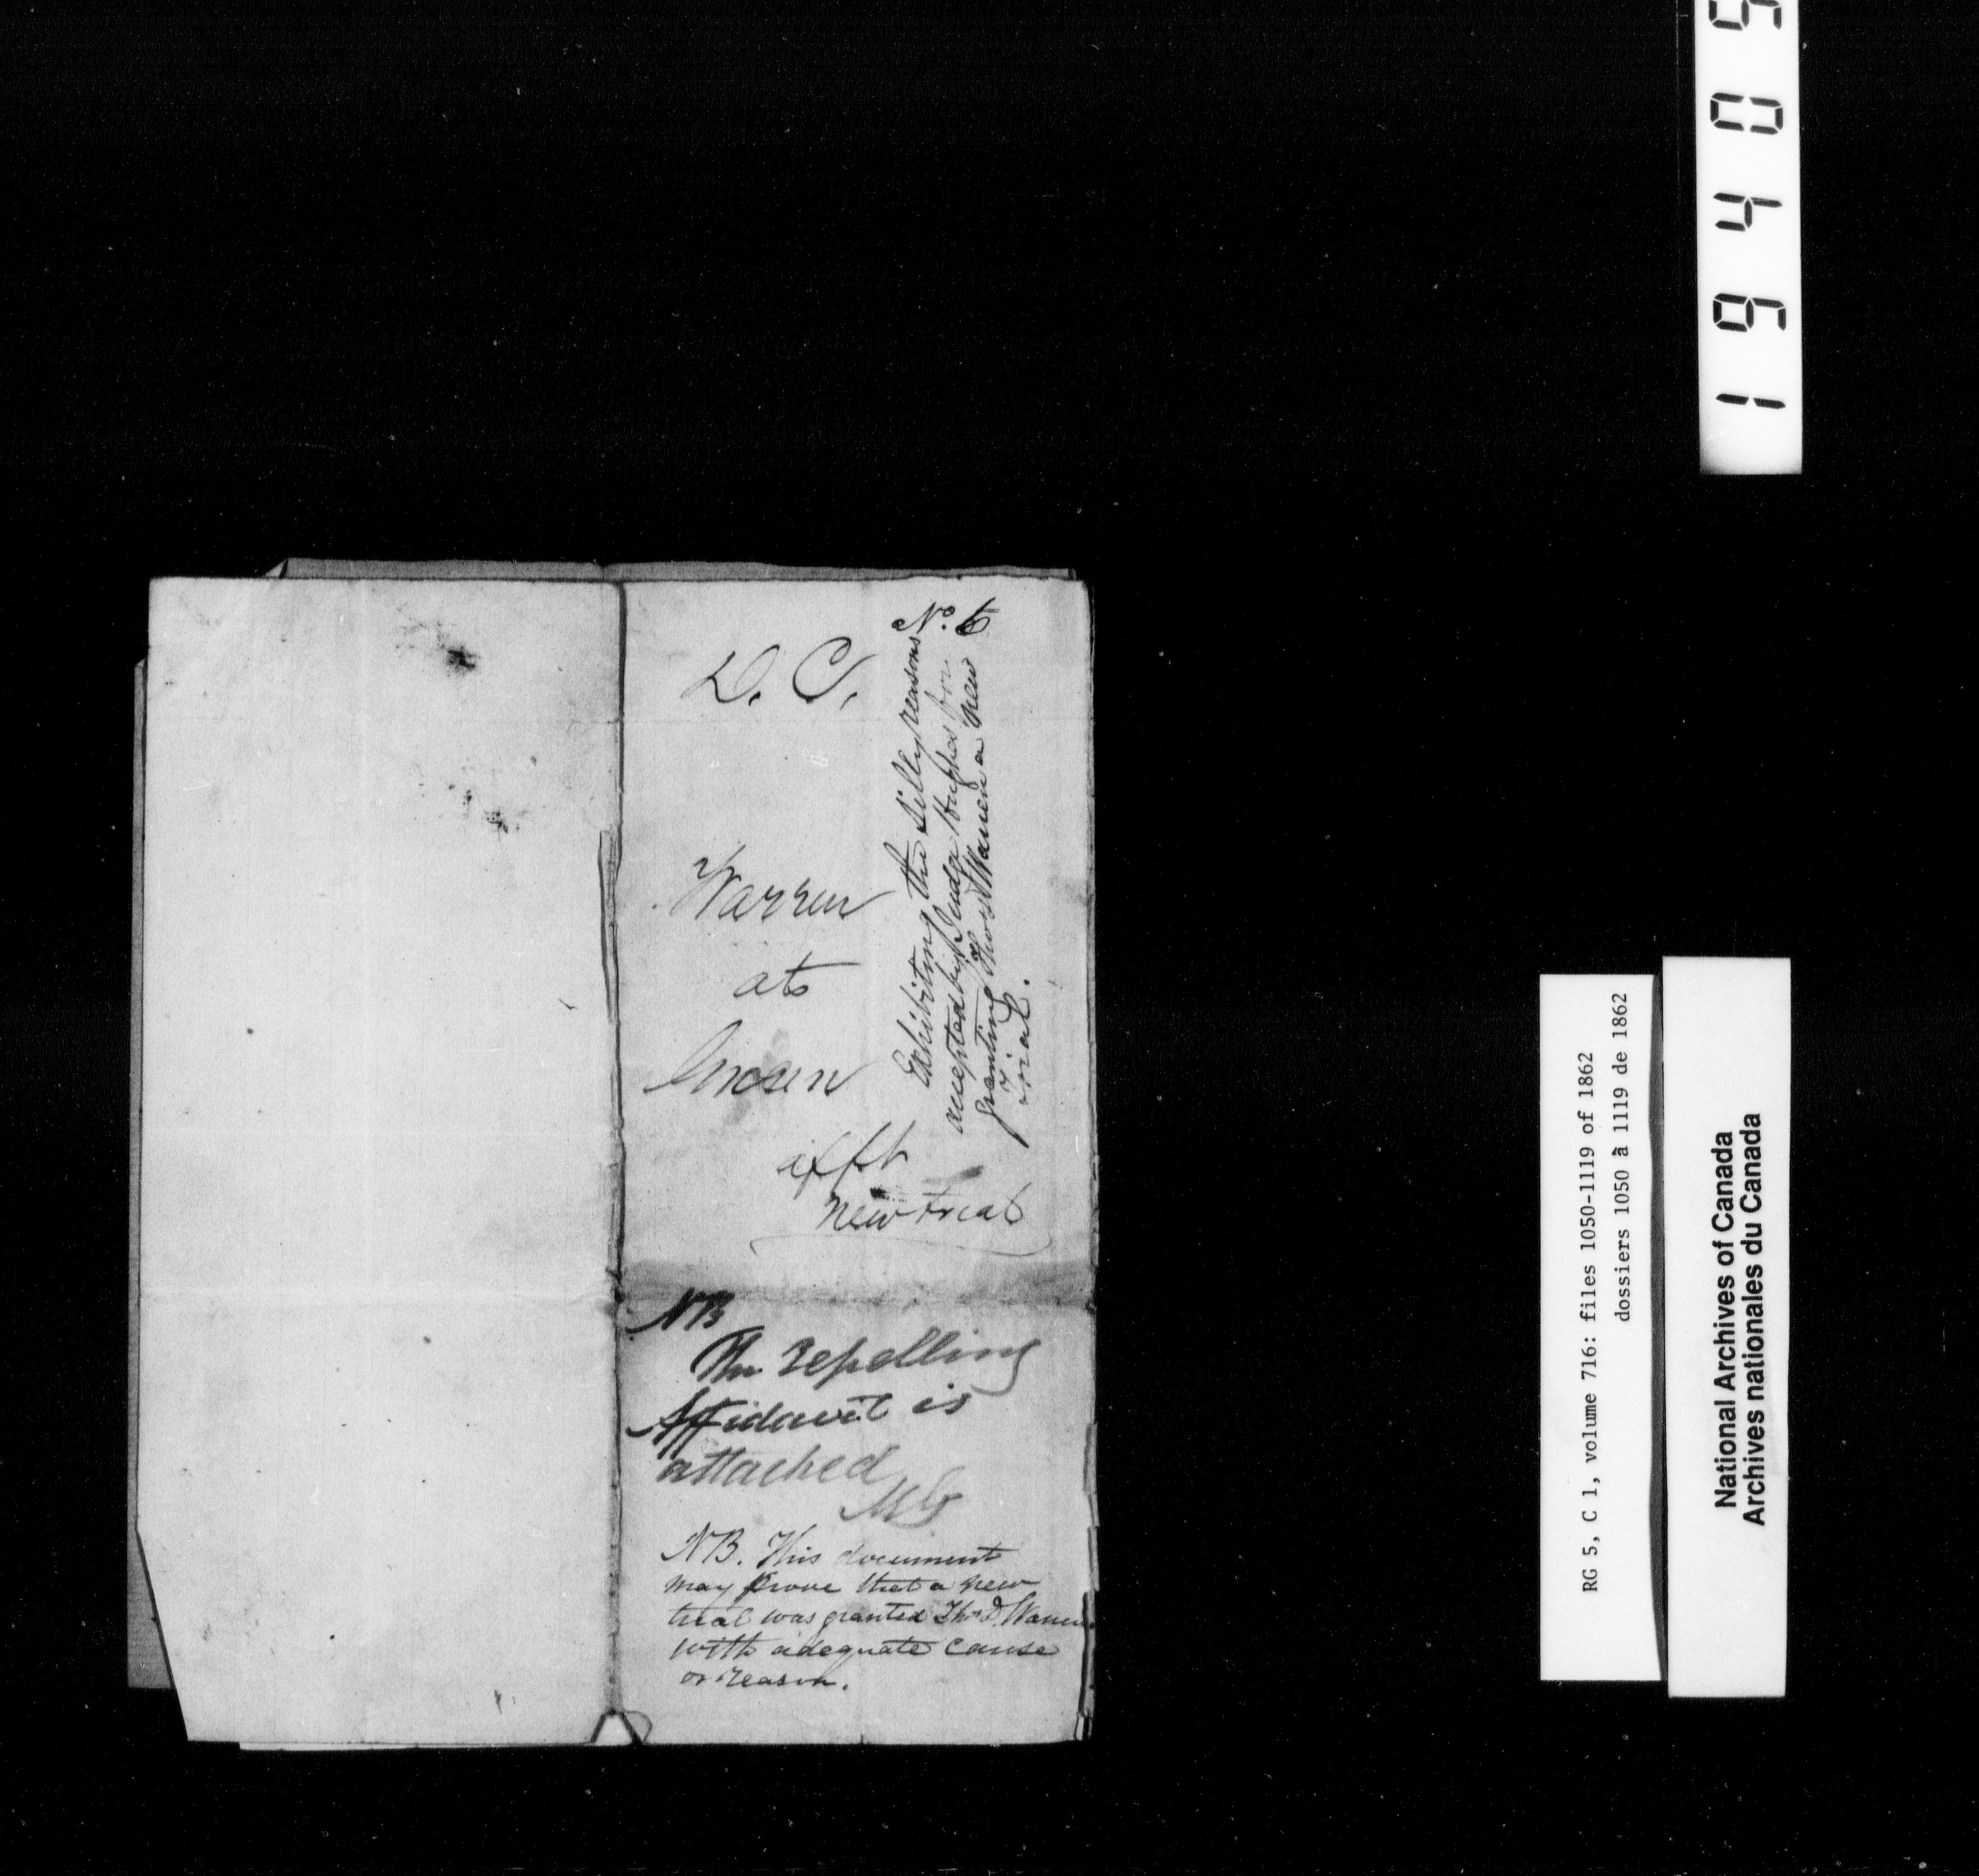 No. 6
D. C.
Exhibiting the silly reasons
accepted by Judge Hughes for
granting Thos. D. Warren a new
trial.
Warren
ats
afft
New trial
NB
The repelling
Affidavit is
attached
NB. This document
may prove that a new
trial was granted Thos D. Warren
with adequate cause
or reason.
19405
RG 5, C 1, volume 716: files 1050-1119 of 1862
dossiers 1050 à 1119 de 1862
National Archives of Canada
Archives nationales du Canada